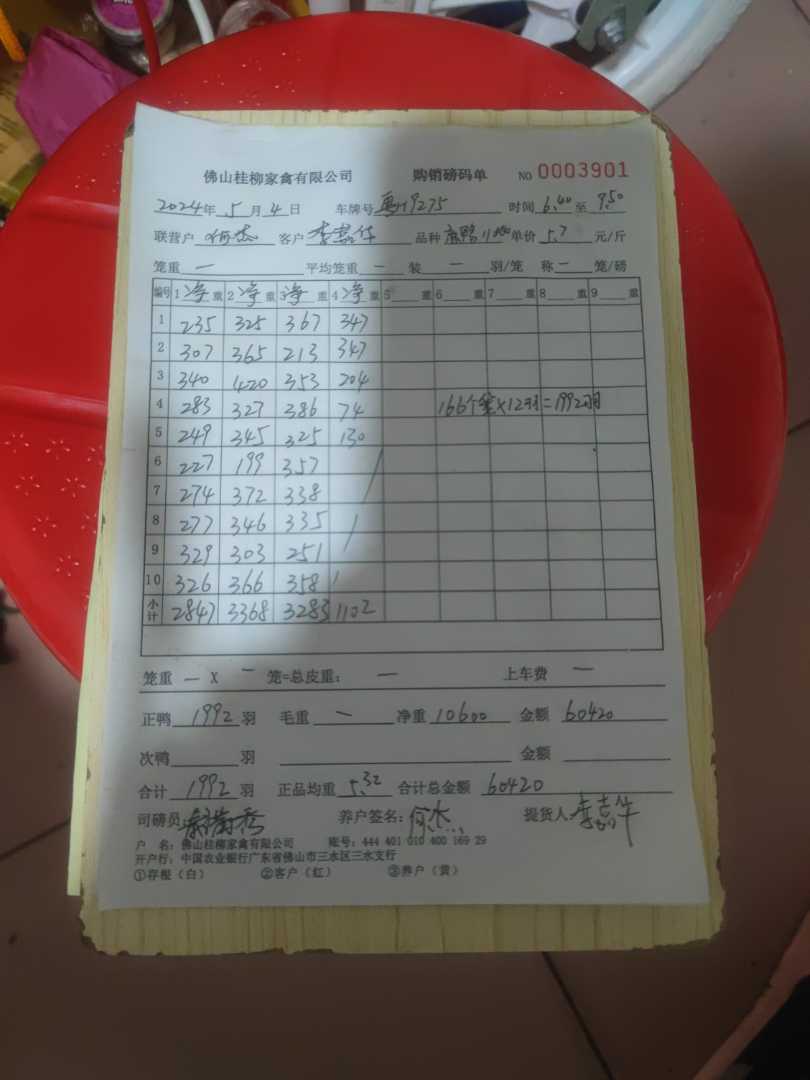 佛山桂柳家禽有限公司 购销磅码单 NO 0003901
2024年 5月 4日 车牌号 粤 19275 时间 6.40 至 9.50
联营户 何 客户 李嘉华 品种 麻鸭 单价 5.7 元/斤
笼重 — 平均笼重 — 装 — 羽/笼 称 — 笼/磅
编号 1 净 重 2 净 重 3 净 重 4 净 重 5 重 6 重 7 重 8 重 9 重
1 235 325 367 347
2 307 365 213 347
3 340 420 353 204
4 283 327 386 74 166个笼×12羽=1992羽
5 249 345 325 130
6 227 199 357
7 274 372 338
8 277 346 335
9 329 303 251
10 326 366 358
小计 2847 3368 3283 1102
笼重 — X — 笼=总皮重: — 上车费 —
正鸭 1992 羽 毛重 — 净重 10600 金额 60420
次鸭 羽 金额
合计 1992 羽 正品均重 5.32 合计总金额 60420
司磅员: 养户签名: 何 提货人: 李嘉华
户 名: 佛山桂柳家禽有限公司 账号: 444 401 010 400 169 29
开户行: 中国农业银行广东省佛山市三水区三水支行
①存根(白) ②客户(红) ③养户(黄)